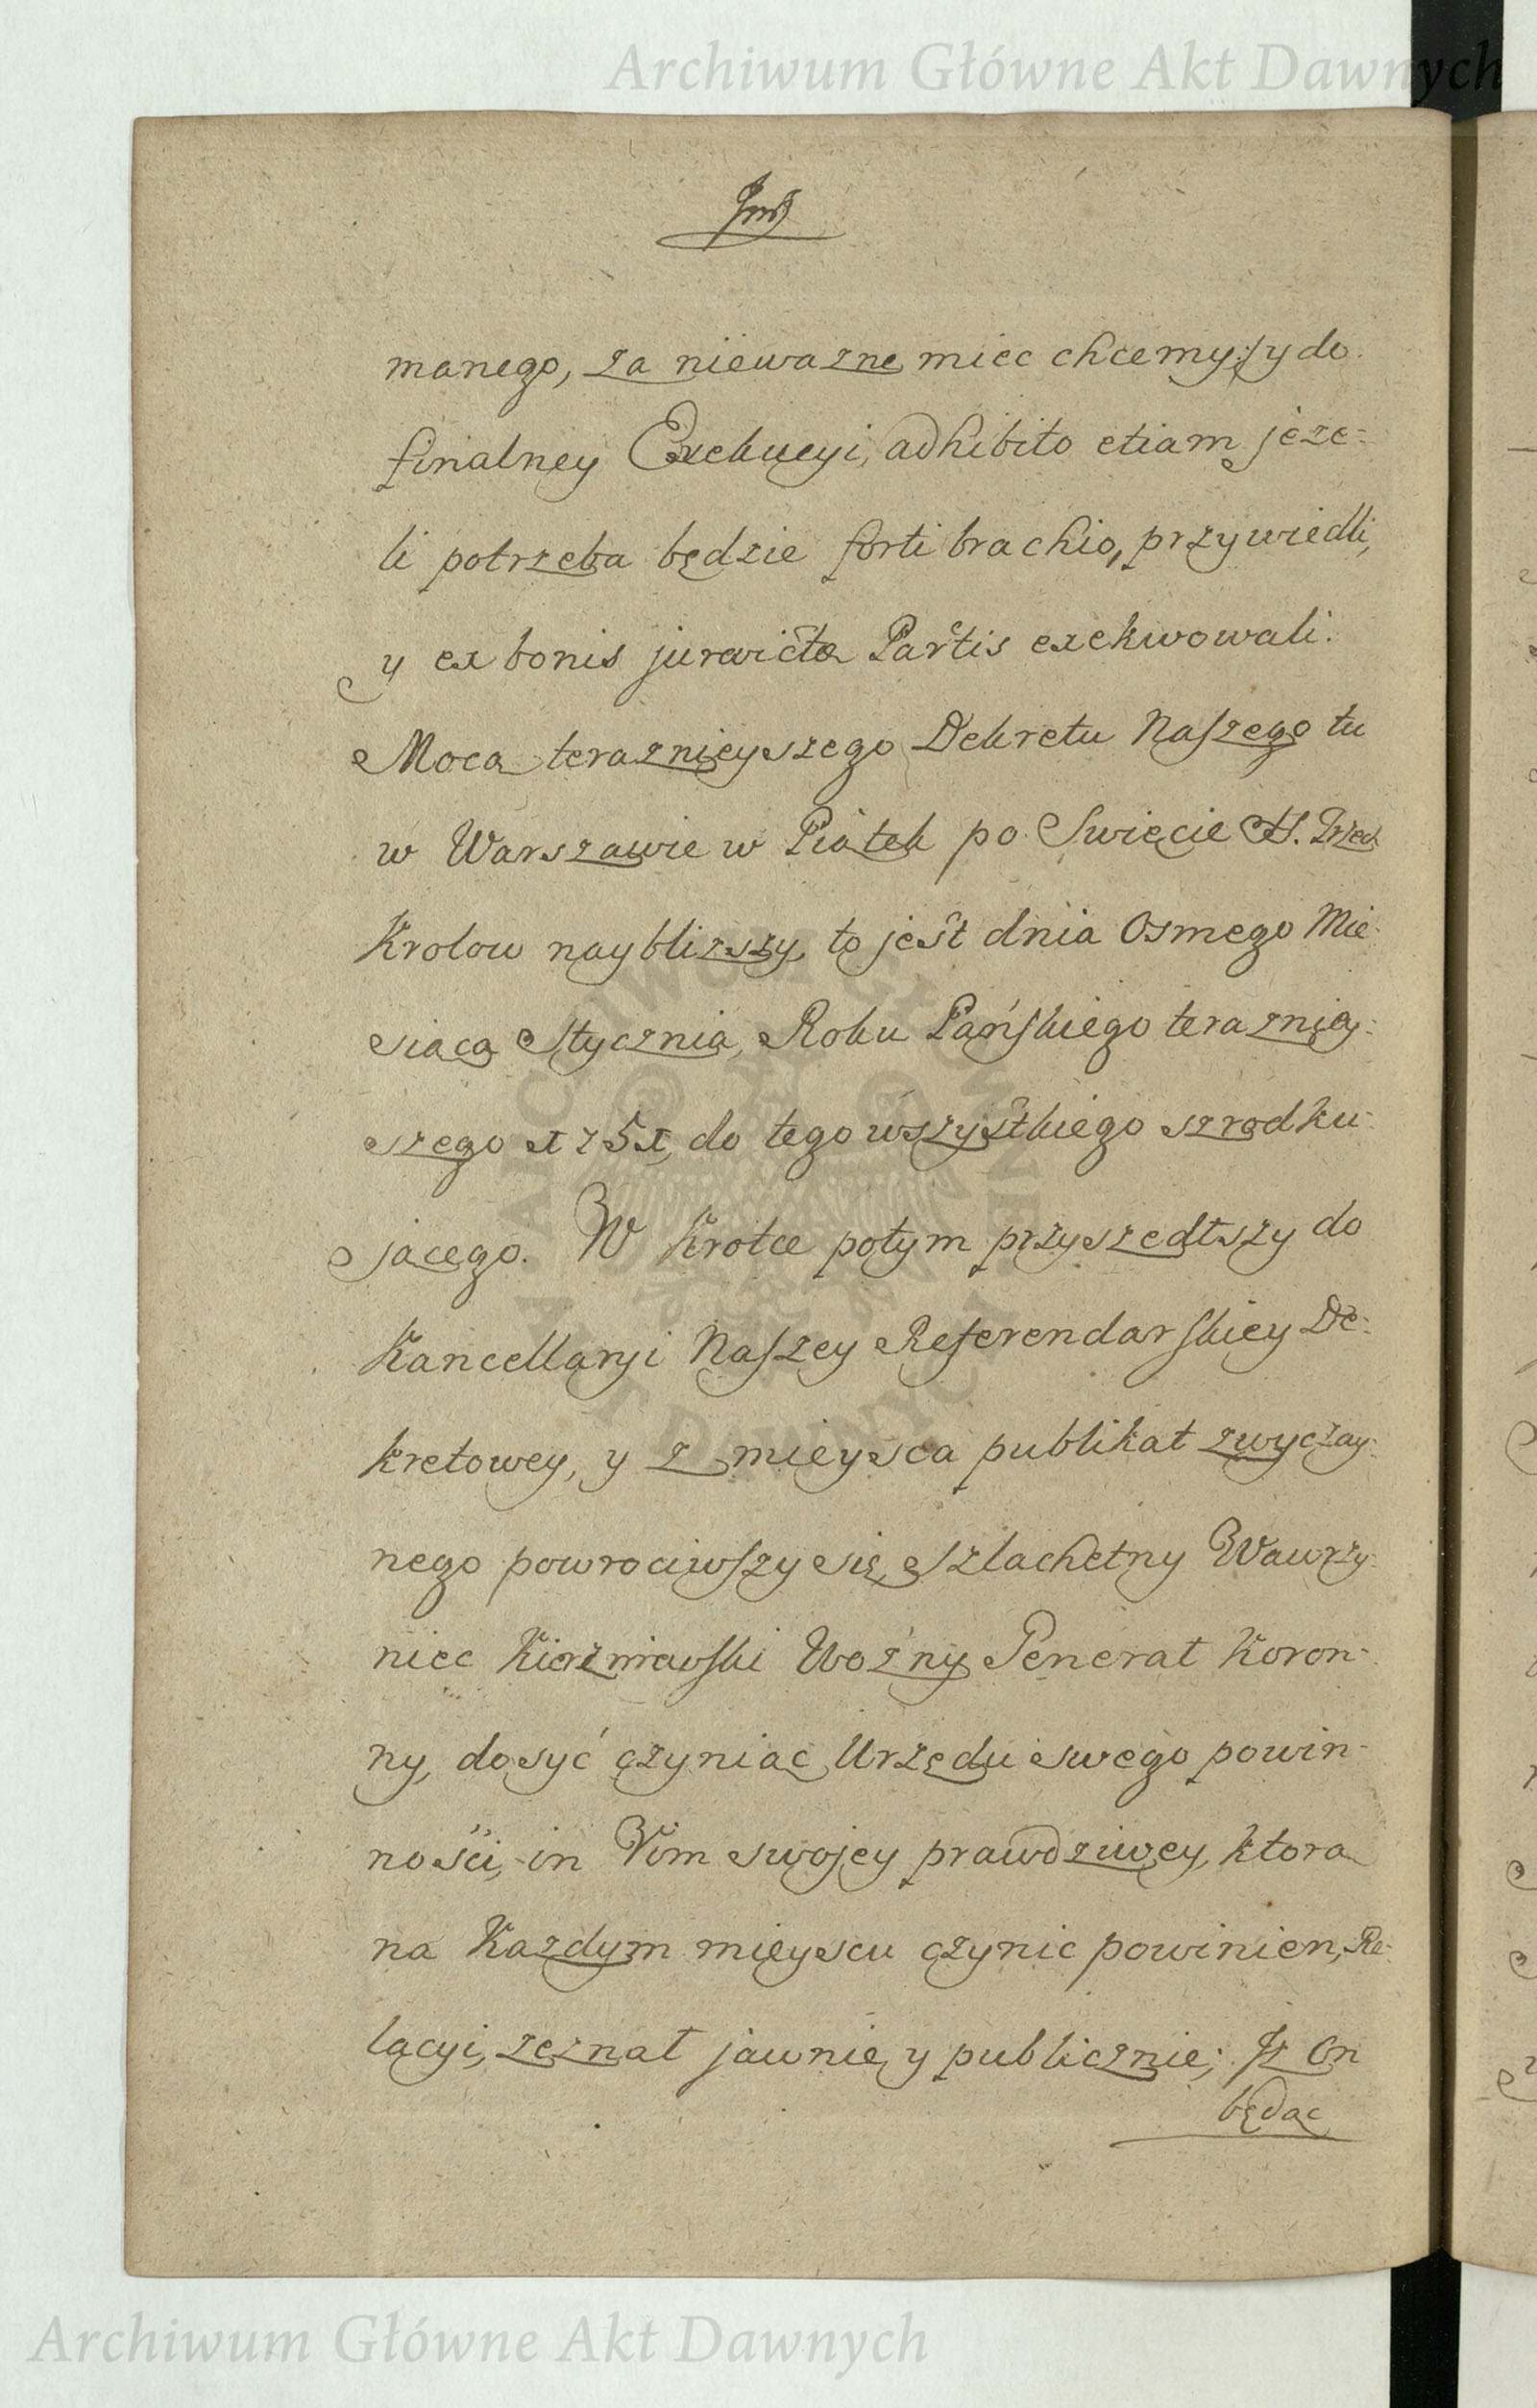 Archiwum Główne Akt Dawnych
manego, za niewazne miec chcemy:/ y do
finalney Exekucyi, adhibito etiam jeze-
li potrzeba będzie forti brachio, przywiedli,
y ex bonis jurevictæ Partis exekwowali.
Mocą teraznieyszego Dekretu Naszego tu
w Warszawie w Piątek po Swięcie SS. Trzech
Krolow naybliższy, to jest dnia Osmego Mie-
siąca Stycznia, Roku Pańskiego teraznięy-
szego 1751, do tego wszystkiego szrodku-
jącego. W Krotce potym przyszedłszy do
Kancellaryi Naszey Referendarskiey De-
kretowey, y z mieysca publikat zwyczay-
nego powrociwszy się, Szlachetny Wawrzy-
niec Woźny Generał Koron-
ny, dosyć czyniąc Urzędu swego powin-
ności, in Vim swojey prawdziwey, ktorą
na Kazdym mieyscu czynic powinien, Re-
lacyi, zeznał jawnie, y publicznie; Iz On
będąc
ARCHIWUM GŁÓWNE AKT DAWNYCH
Archiwum Główne Akt Dawnych